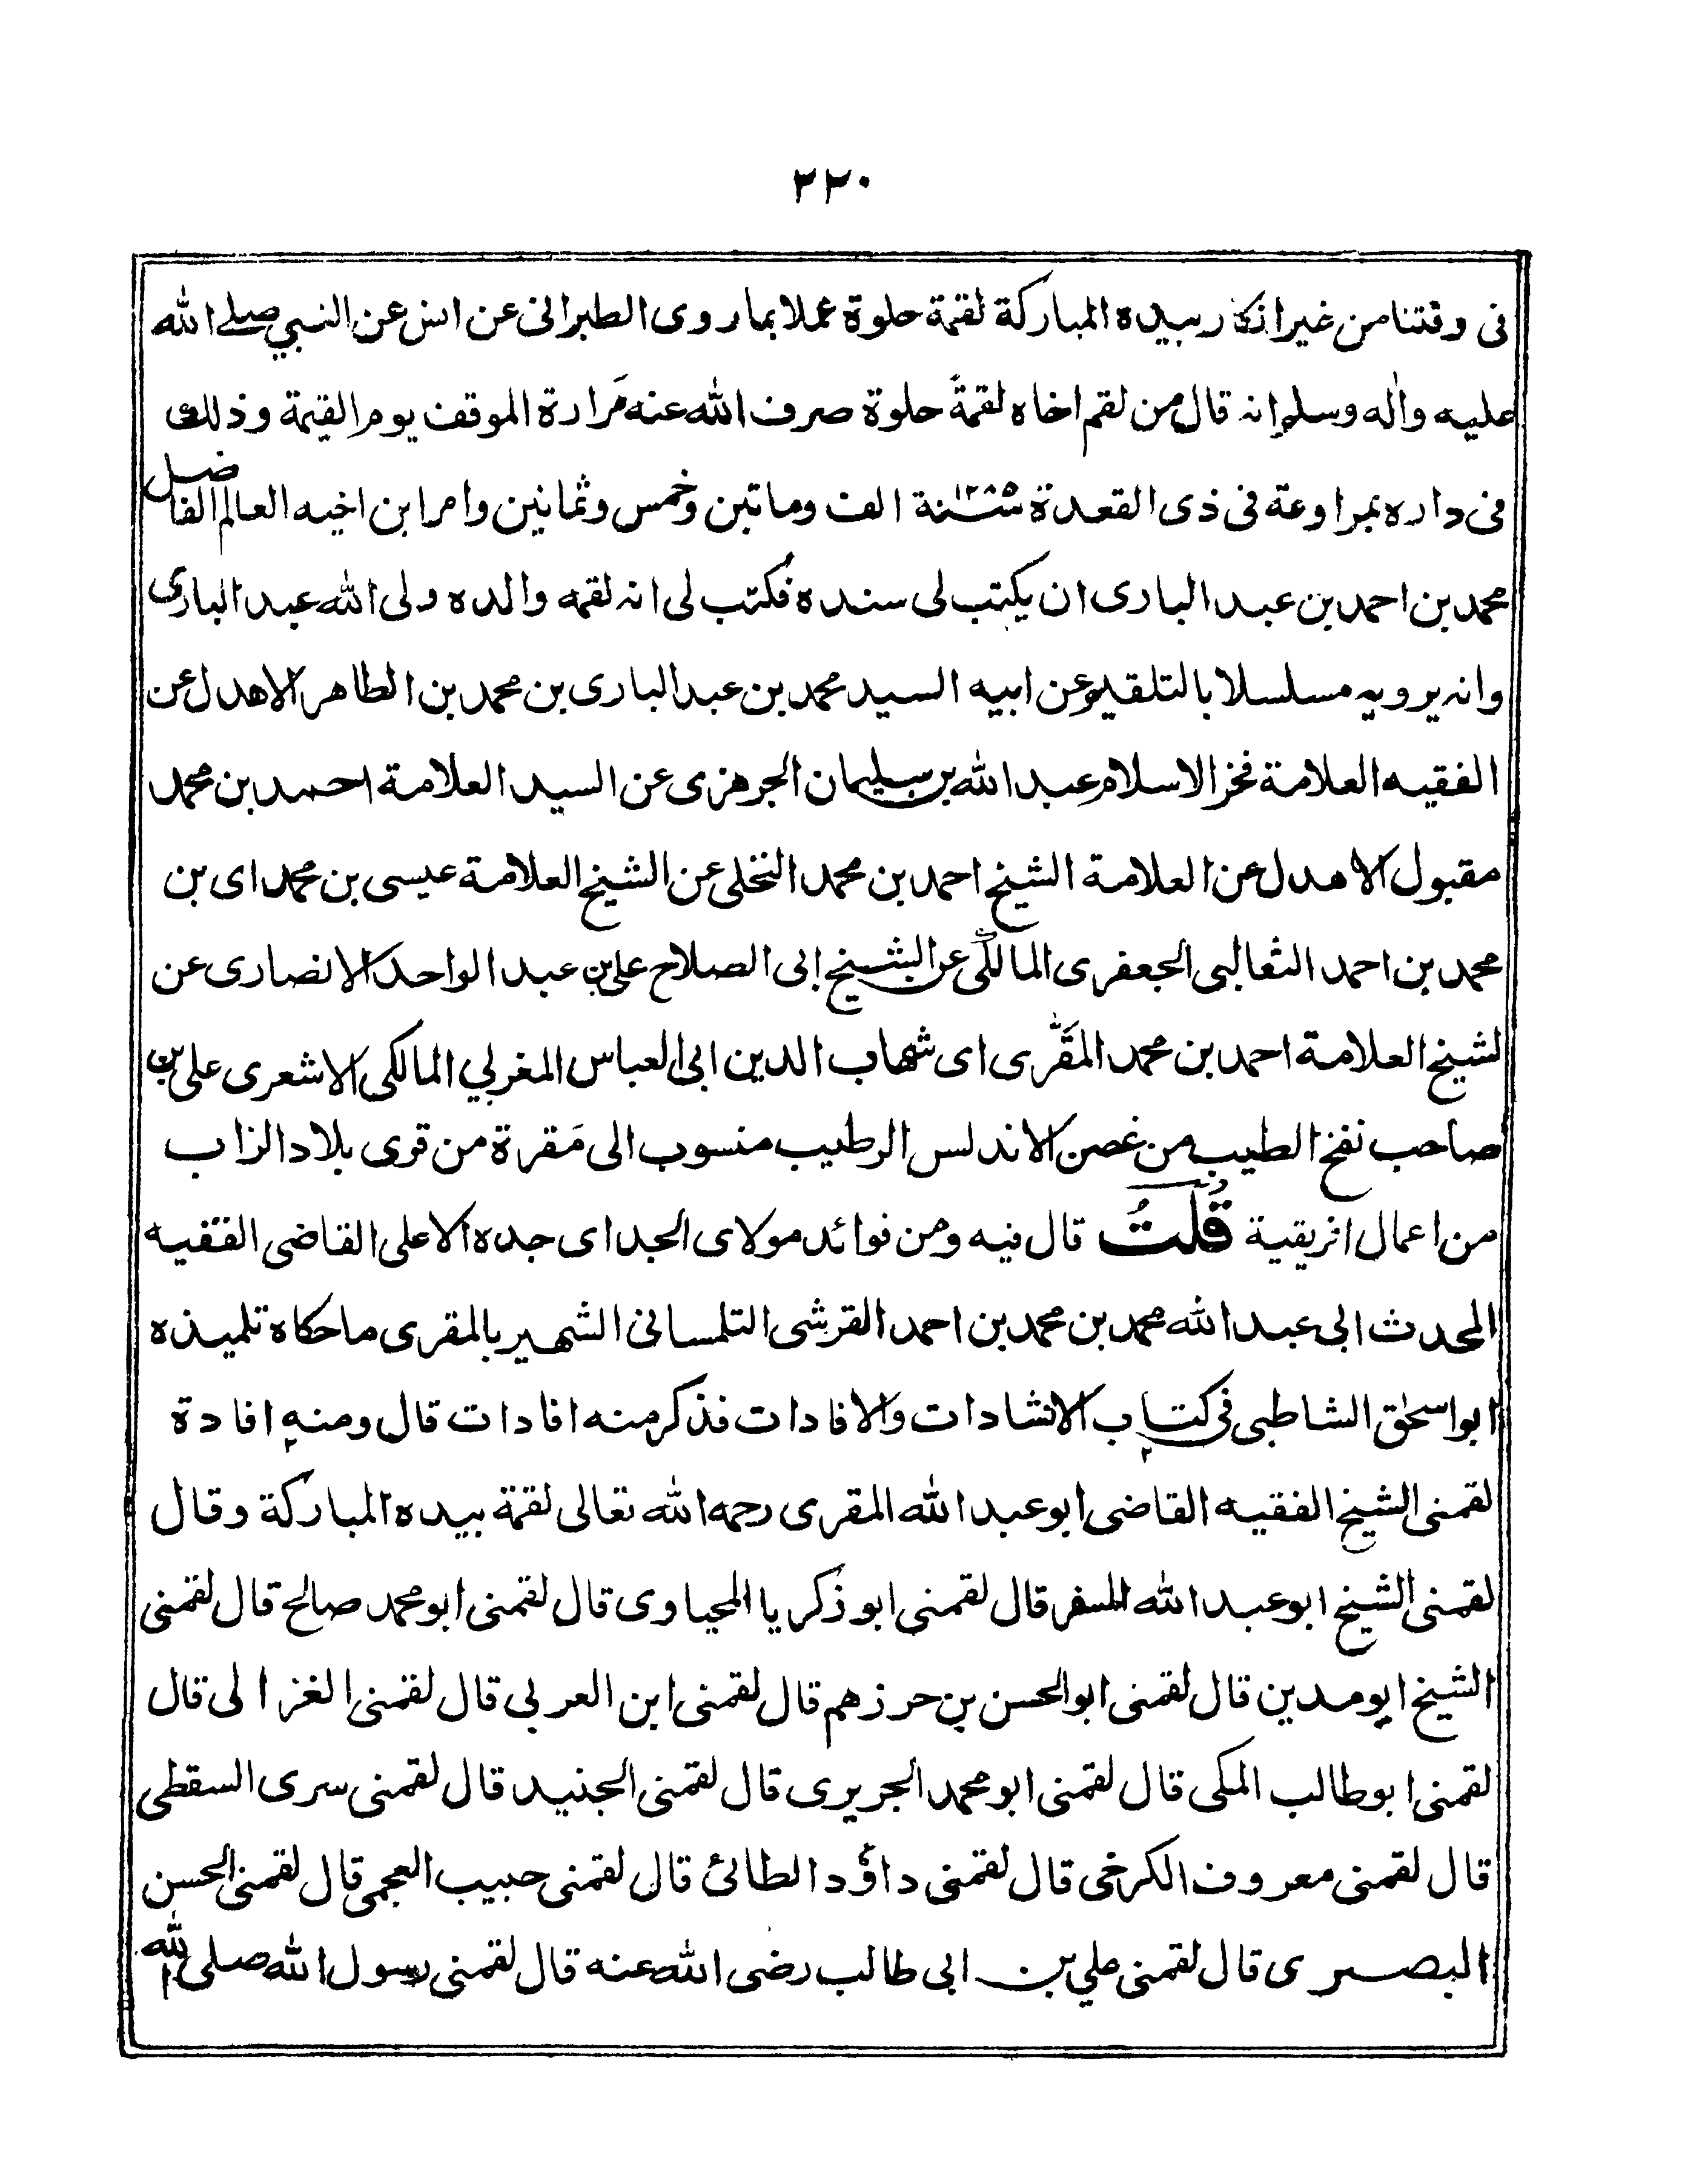 ٢٢٠
فى وقتنا من غير انكار بيده المباركة لقمة حلوة عملا بما روى الطبرانى عن انس عن النبي صلے الله
عليه واٰله وسلم انه قال من لقم اخاه لقمةً حلوة صرف الله عنه مَرارة الموقف يوم القيمة وذلك
فى داره بمراوعة فى ذى القعدة ١٢٨٥سنة الف وماتين وخمس وثمانين وامر ابن اخيه العالم الفاضل
محمد بن احمد بن عبد البارى ان يكتب لى سنده فكتب لى انه لقمه والده ولى الله عبد البارى
وانه يرويه مسلسلا بالتلقيم عن ابيه السيد محمد بن عبد البارى بن محمد بن الطاهر الاهدل عن
الفقيه العلامة فخر الاسلام عبد الله بن سليمان الجرهزى عن السيد العلامة احمد بن محمد
مقبول الاهدل عن العلامة الشيخ احمد بن محمد النخلى عن الشيخ العلامة عيسى بن محمد اى بن
محمد بن احمد الثعالبى الجعفرى المالكى عن الشيخ ابى الصلاح على بن عبد الواحد الانصارى عن
لشيخ العلامة احمد بن محمد المَقَّرى اى شهاب الدين ابى العباس المغربي المالكى الاشعرى على بن
صاحب نفخ الطيب من غصن الاندلس الرطيب منسوب الى مَقرة من قرى بلاد الزاب
من اعمال افريقية قُلتُ قال فيه ومن فوائد مولاى الجد اى جده الاعلى القاضى الفقيه
المحدث ابى عبد الله محمد بن محمد بن احمد القرشى التلمسانى الشهير بالمقرى ما حكاه تلميذه
ابو اسحٰق الشاطبى فى كتاب الانشادات والافادات فذكر منه افادات قال ومنه افادة
لقمنى الشيخ الفقيه القاضى ابو عبد الله المقرى رحمه الله تعالى لقمة بيده المباركة وقال
لقمنى الشيخ ابو عبد الله المسفر قال لقمنى ابو زكريا المحياوى قال لقمنى ابو محمد صالح قال لقمنى
الشيخ ابو مدين قال لقمنى ابو الحسن بن حرزهم قال لقمنى ابن العربى قال لقمنى الغزالى قال
لقمنى ابو طالب المكى قال لقمنى ابو محمد الجريرى قال لقمنى الجنيد قال لقمنى سرى السقطى
قال لقمنى معروف الكرخى قال لقمنى داؤد الطائى قال لقمنى حبيب العجمى قال لقمنى الحسن
البصرى قال لقمنى علي بن ابى طالب رضى الله عنه قال لقمنى رسول الله صلى الله